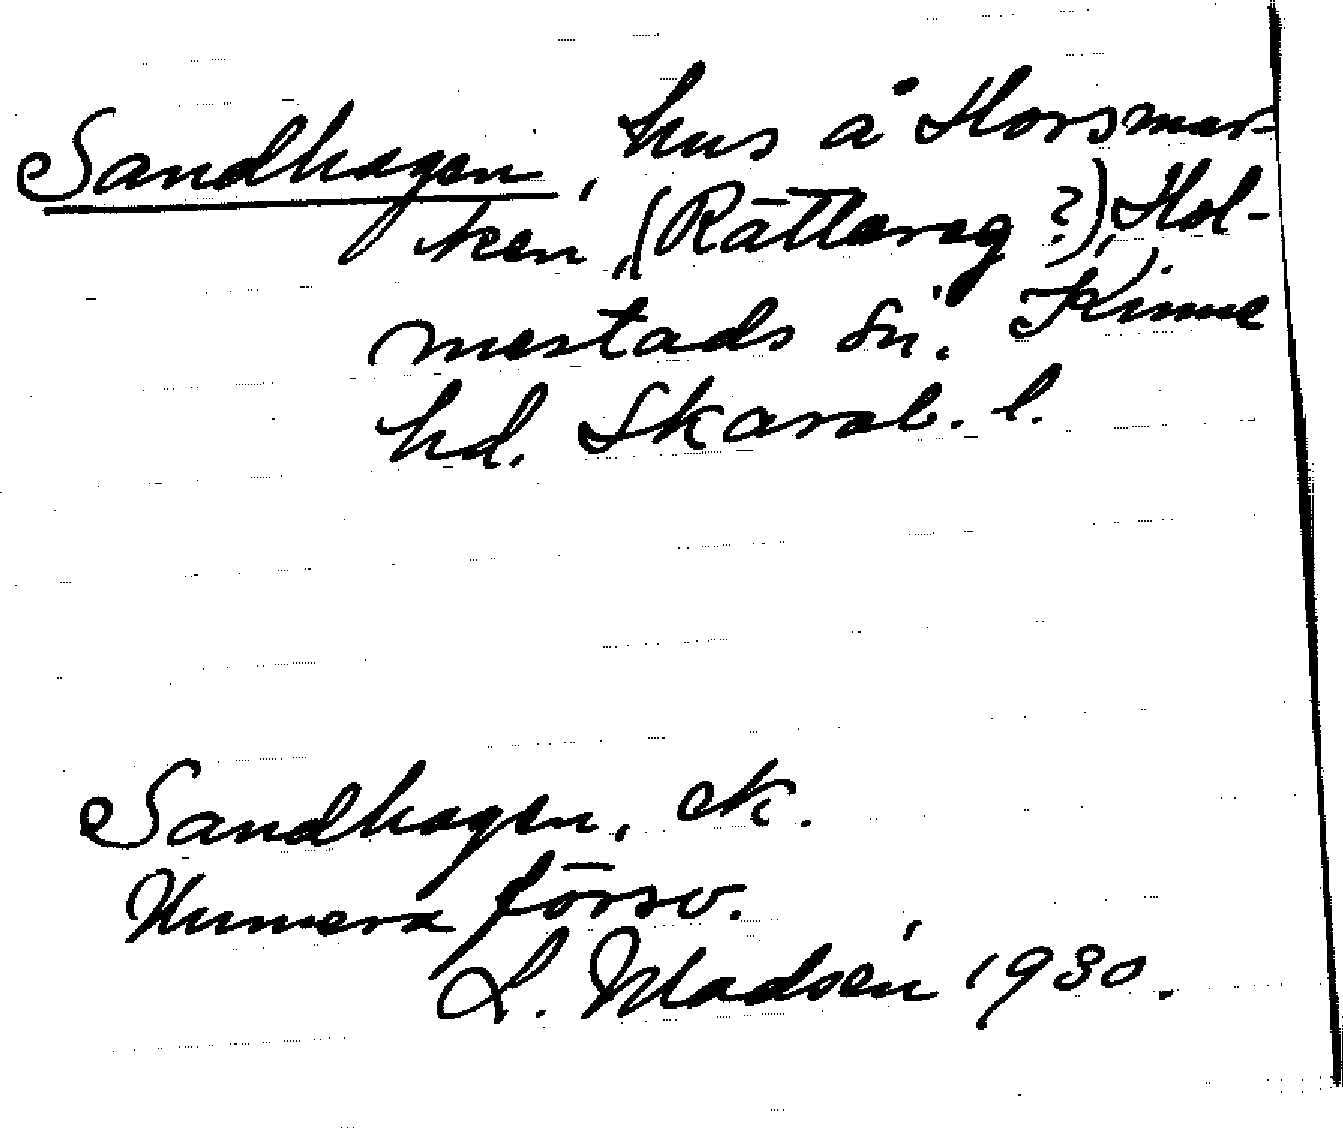 Sandhagen, hus å Horsmar-
ken, (Rättareg?), Hol-
mestads sn. Kinne
hd. Skarab. l.
Sandhagen, ek.
Numera försv.
L. Madsén 1930.